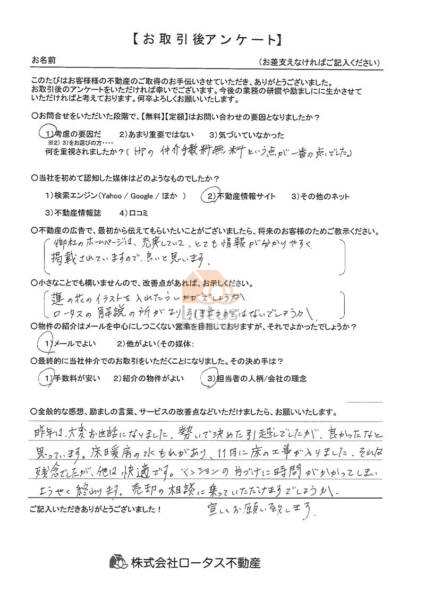 【お取引後アンケート】
お名前 (お差支えなければご記入ください)
このたびはお客様様の不動産のご取得のお手伝いさせていただき、ありがとうございました。
お取引後のアンケートをいただければ幸いでございます。今後の業務の研鑽や励ましに生かさせて
いただければと考えております。何卒よろしくお願いいたします。
〇お問合せをいただいた段階で、【無料】【定額】はお問い合わせの要因となりましたか？
1)考慮の要因だ 2)あまり重要ではない 3)気づいていなかった
※2）3）をお選びの方・・・・
何を重視されましたか？(HPの仲介手数料無料という点が一番の点でした)
〇当社を初めて認知した媒体はどのようなものでしたか？
1)検索エンジン(Yahoo / Google / ほか ) 2)不動産情報サイト 3)その他のネット
3)不動産情報誌 4)口コミ
〇不動産の広告で、最初から伝えてもらいたいことがございましたら、将来のお客様のためご教示ください。
御社のホームページは、充実していて、とても情報が分かりやすく
掲載されていますので、良いと思います。
〇小さなことでも構いませんので、改善点があれば、お示しください。
蓮の花のイラストを入れたらいかがでしょうか
ロータスの解説の所がありますのではないでしょうか。
〇物件の紹介はメールを中心にしつこくない営業を目指しておりますが、それでよかったでしょうか？
1)メールでよい 2)他がよい(その媒体:
〇最終的に当社仲介でのお取引をいただくことになりました。その決め手は？
1)手数料が安い 2)紹介の物件がよい 3)担当者の人柄/会社の理念
〇全般的な感想、励ましの言葉、サービスの改善点などいただけましたら、お願いいたします。
昨年は、大変お世話になりました。勢いで決めた引越しでしたが、良かったなと
思っています。床暖房の水もれがあり、11月に床の工事が入りました。それは
残念でしたが、他は快適です。マンションの片づけに時間がかかってしまい
ようやく終わります。売却の相談に乗っていただけますでしょうか。
ご記入いただきありがとうございました！ 宜しくお願い致します。
株式会社ロータス不動産